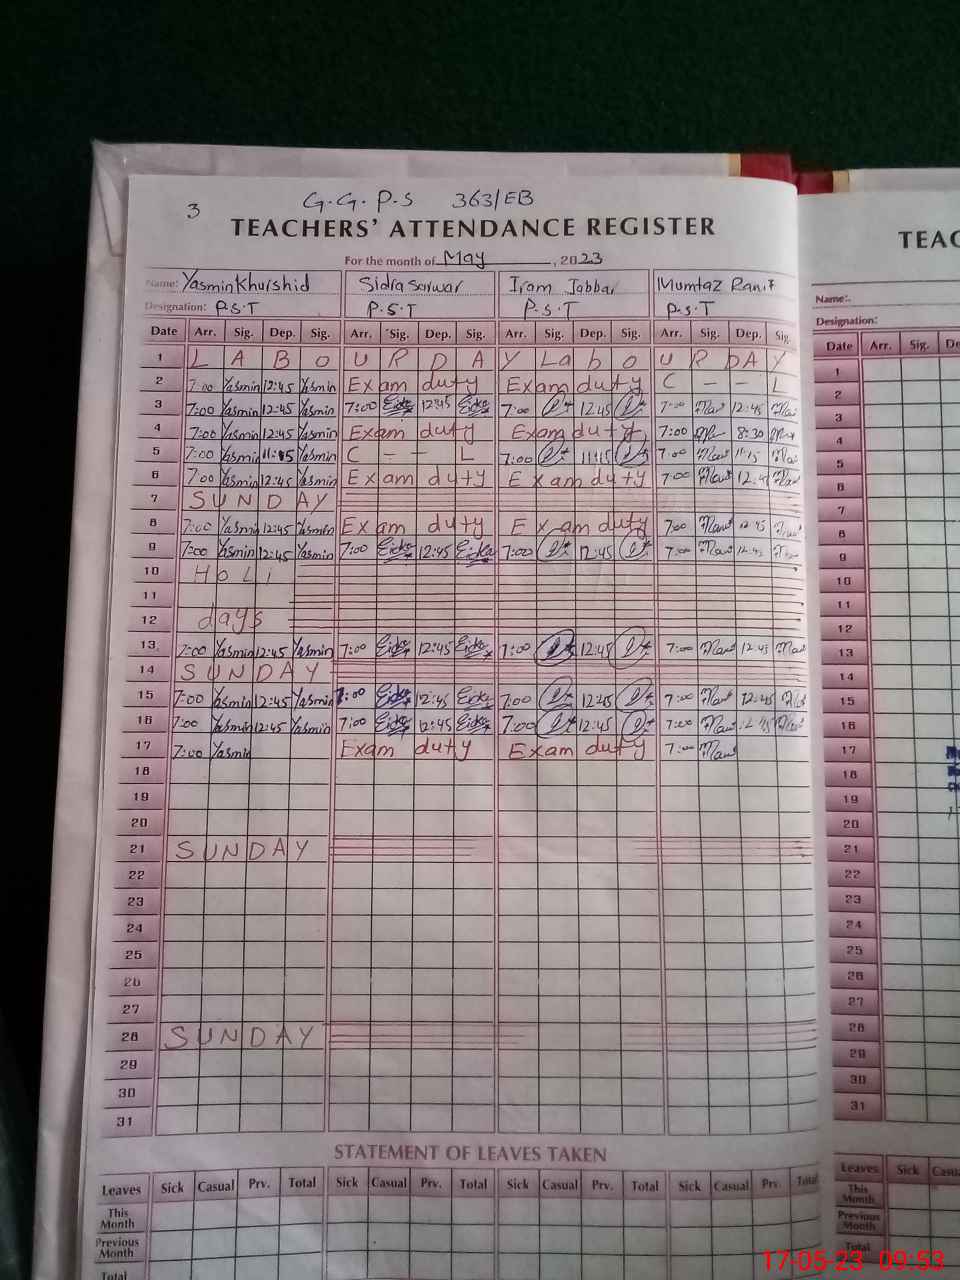 3 G.G.P.S 363/EB
TEACHERS' ATTENDANCE REGISTER
For the month of May, 2023
Name: Yasmin Khurshid Sidra Sarwar Iram Jabbar Mumtaz
Designation: P.S.T P.S.T P.S.T P.S.T
Date Arr. Sig. Dep. Sig. Arr. Sig. Dep. Sig. Arr. Sig. Dep. Sig. Arr. Sig. Dep. Sig.
1 L A B O U R D A Y L a b o U R D A Y
2 7:00 Yasmin 12:45 Yasmin Exam duty Exam duty C - - L
3 7:00 Yasmin 12:45 Yasmin 7:00 12:45 7:00 12:45 7:00 12:45
4 7:00 Yasmin 12:45 Yasmin Exam duty Exam duty 7:00 8:30
5 7:00 Yasmin 11:15 Yasmin C - - L 7:00 11:15 7:00 11:15
6 7:00 Yasmin 12:45 Yasmin Exam duty Exam duty 7:00 12:45
7 S U N D A Y
8 7:00 Yasmin 12:45 Yasmin Exam duty Exam duty 7:00 12:45
9 7:00 Yasmin 12:45 Yasmin 7:00 12:45 7:00 12:45 7:00 12:45
10 H o L i
11
12 days
13 7:00 Yasmin 12:45 Yasmin 7:00 12:45 7:00 12:45 7:00 12:45
14 S U N D A Y
15 7:00 Yasmin 12:45 Yasmin 7:00 12:45 7:00 12:45 7:00 12:45
16 7:00 Yasmin 12:45 Yasmin 7:00 12:45 7:00 12:45 7:00 12:45
17 7:00 Yasmin Exam duty Exam duty 7:00
18
19
20
21 S U N D A Y
22
23
24
25
26
27
28 S U N D A Y
29
30
31
STATEMENT OF LEAVES TAKEN
Leaves Sick Casual Prv. Total Sick Casual Prv. Total Sick Casual Prv. Total Sick Casual Prv. Total
This Month
Previous Month
Total
TEAC
Name:
Designation:
Date Arr. Sig. De
1
2
3
4
5
6
7
8
9
10
11
12
13
14
15
16
17
18
19
20
21
22
23
24
25
26
27
28
29
30
31
Leaves Sick Casu
This Month
Previous Month
Total
17-05-23 09:53